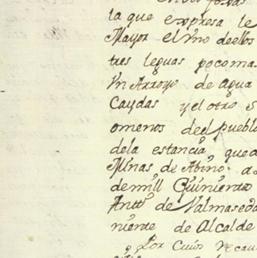 la que expresa le
Mayor el vno de ellos
tres leguas poco mas
Vn Arroyo de agua
Caydas y el otro
omenos del pueblo
dela estancia que
Minas de Abino
de mill Quinientos
Antt.o de Valmaseda
niente de Alcalde
Por Cuios